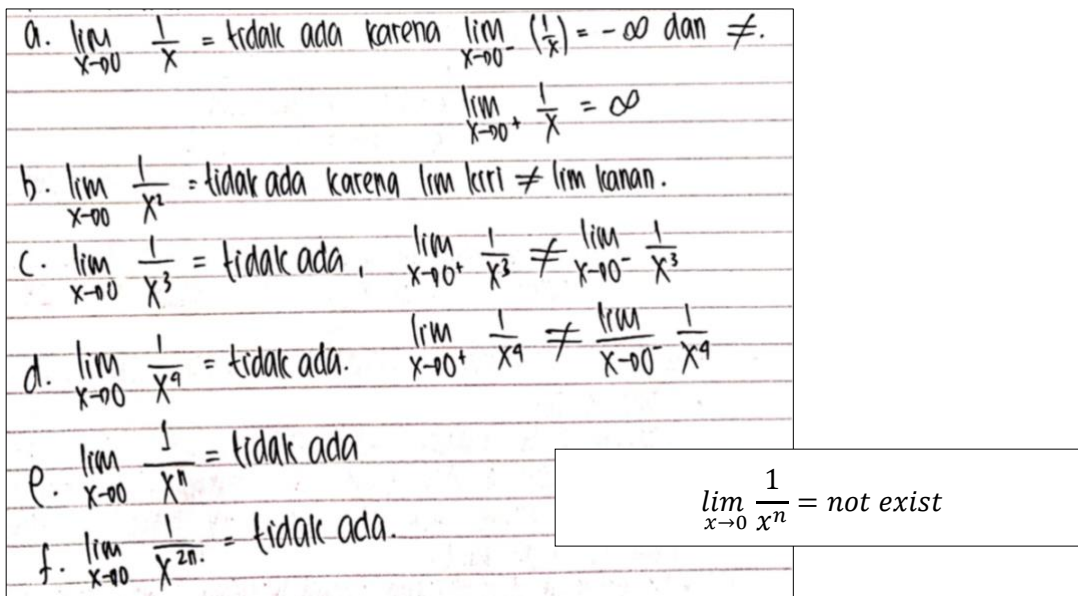 a. lim x→0 1/x = tidak ada karena lim x→0⁻ (1/x) = -∞ dan ≠.
lim x→0⁺ 1/x = ∞
b. lim x→0 1/x² = tidak ada karena lim kiri ≠ lim kanan.
c. lim x→0 1/x³ = tidak ada, lim x→0⁺ 1/x³ ≠ lim x→0⁻ 1/x³
d. lim x→0 1/x⁴ = tidak ada. lim x→0⁺ 1/x⁴ ≠ lim x→0⁻ 1/x⁴
e. lim x→0 1/xⁿ = tidak ada
lim x→0 1/xⁿ = not exist
f. lim x→0 1/x²ⁿ· = tidak ada.